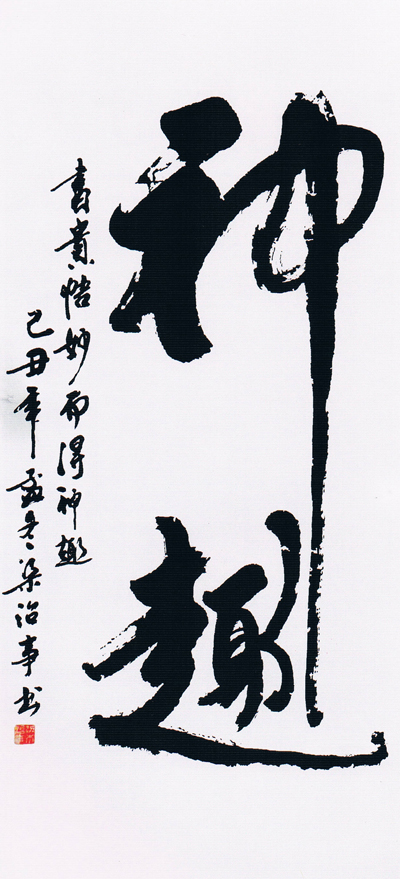 神趣
書貴悟妙而得神趣
己丑年孟冬梁治事书